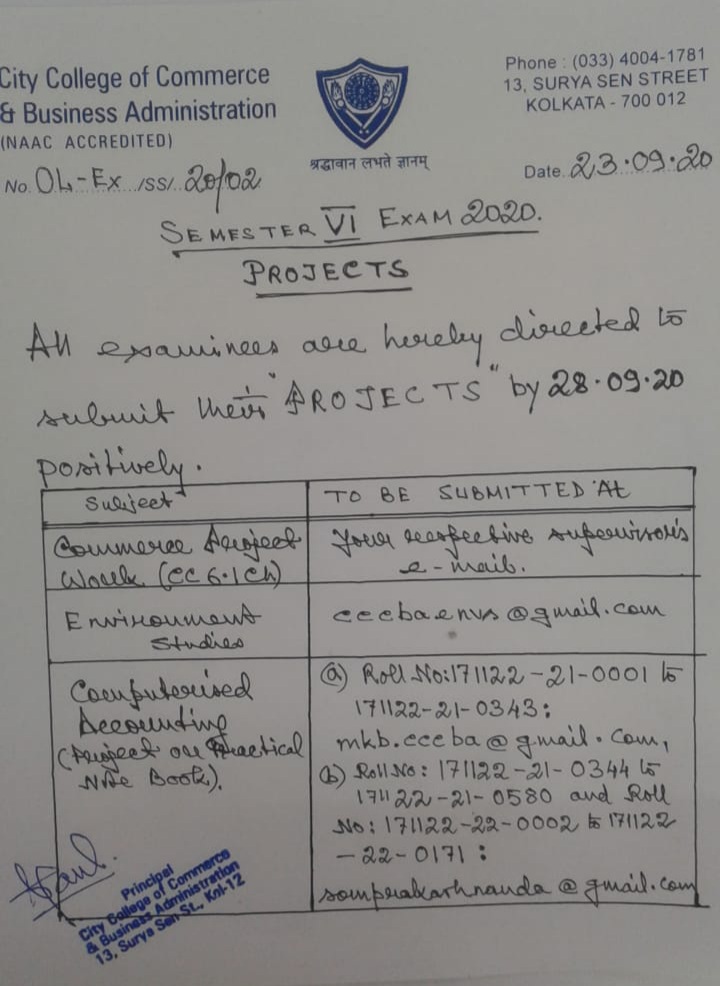 City College of Commerce
& Business Administration
(NAAC ACCREDITED)
श्रद्धावान लभते ज्ञानम्
Phone : (033) 4004-1781
13, SURYA SEN STREET
KOLKATA - 700 012
No. OL-Ex /SS/ 20/02
Date. 23.09.20
SEMESTER VI EXAM 2020.
PROJECTS
All examinees are hereby directed to
submit their "PROJECTS" by 28.09.20
positively.
Subject
TO BE SUBMITTED At
Commerce Project
Work (CC 6.1 Ch)
Your respective supervisor's
e-mail.
Environment
Studies
cccbaenvs@gmail.com
Computerised
Accounting
(Project on Practical
Note Book).
(a) Roll No:171122-21-0001 to
171122-21-0343:
mkb.cccba@gmail.com,
(b) Roll No: 171122-21-0344 to
171122-21-0580 and Roll
No: 171122-22-0002 to 171122
-22-0171:
somprakashnanda@gmail.com
Principal
City College of Commerce
& Business Administration
13, Surya Sen St., Kol-12